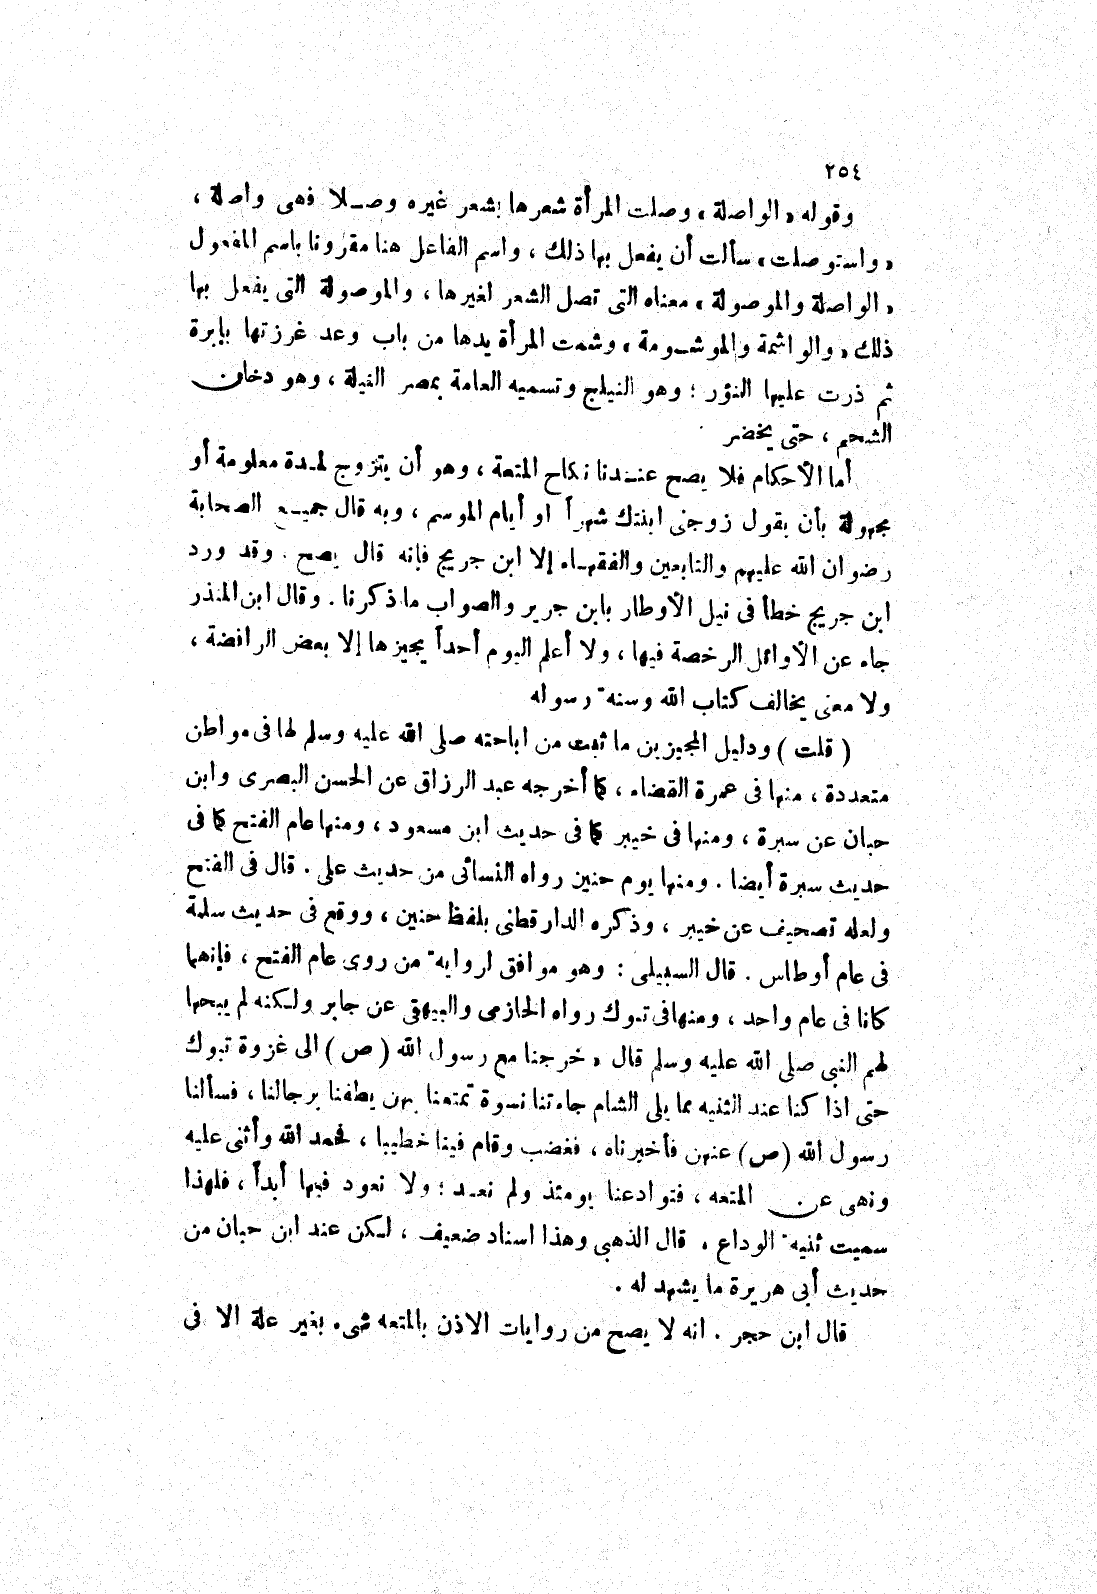 ٢٥٤
وقوله «الواصلة» وصلت المرأة شعرها بشعر غيره وصلا فهى واصلة ،
«واستوصلت» سألت أن يفعل بها ذلك ، واسم الفاعل هنا مقرونا باسم المفعول
«الواصلة والموصولة» معناه التى تصل الشعر لغيرها ، والموصولة التى يفعل بها
ذلك «والواشمة والموشومة» وشمت المرأة يدها من باب وعد غرزتها بإبرة
ثم ذرت عليها النؤر ؛ وهو النيلج وتسميه العامة بمصر النيلة ، وهو دخان
الشحم ، حتى يخضر
أما الأحكام فلا يصح عندنا نكاح المتعة ، وهو أن يتزوج لمدة معلومة أو
مجهولة بأن يقول زوجنى ابنتك شهراً او أيام الموسم ، وبه قال جميع الصحابة
رضوان الله عليهم والتابعين والفقهاء إلا ابن جريج فإنه قال يصح . وقد ورد
ابن جريج خطأ فى نيل الأوطار بابن جرير والصواب ماذكرنا . وقال ابن المنذر
جاء عن الأوائل الرخصة فيها ، ولا أعلم اليوم أحداً يجيزها إلا بعض الرافضة ،
ولا معنى يخالف كتاب الله وسنة رسوله
( قلت ) ودليل المجيزين ما ثبت من اباحته صلى الله عليه وسلم لها فى مواطن
متعددة ، منها فى عمرة القضاء ، كما أخرجه عبد الرزاق عن الحسن البصرى وابن
حبان عن سبرة ، ومنها فى خيبر كما فى حديث ابن مسعود ، ومنها عام الفتح كما فى
حديث سبرة أيضا . ومنها يوم حنين رواه النسائى من حديث على . قال فى الفتح
ولعله تصحيف عن خيبر ، وذكره الدارقطنى بلفظ حنين ، ووقع فى حديث سلمة
فى عام أوطاس . قال السهيلى : وهو موافق لرواية من روى عام الفتح ، فإنهما
كانا فى عام واحد ، ومنها فى تبوك رواه الحازمى والبيهقى عن جابر ولكنه لم يبحها
لهم النبى صلى الله عليه وسلم قال « خرجنا مع رسول الله (ص) الى غزوة تبوك
حتى اذا كنا عند الثنيه مما يلى الشام جاءتنا نسوة تمتعنا بهن يطفنا برحالنا ، فسألنا
رسول الله (ص) عنهن فأخبرناه ، فغضب وقام فينا خطيبا ، فحمد الله وأثنى عليه
ونهى عن المتعه ، فتوادعنا يومئذ ولم نعد ؛ ولا نعود فيها أبداً ، فلهذا
سميت ثنية الوداع ، قال الذهبى وهذا اسناد ضعيف ، لكن عند ابن حبان من
حديث أبى هريرة ما يشهد له .
قال ابن حجر . انه لا يصح من روايات الاذن بالمتعه شىء بغير علة الا فى